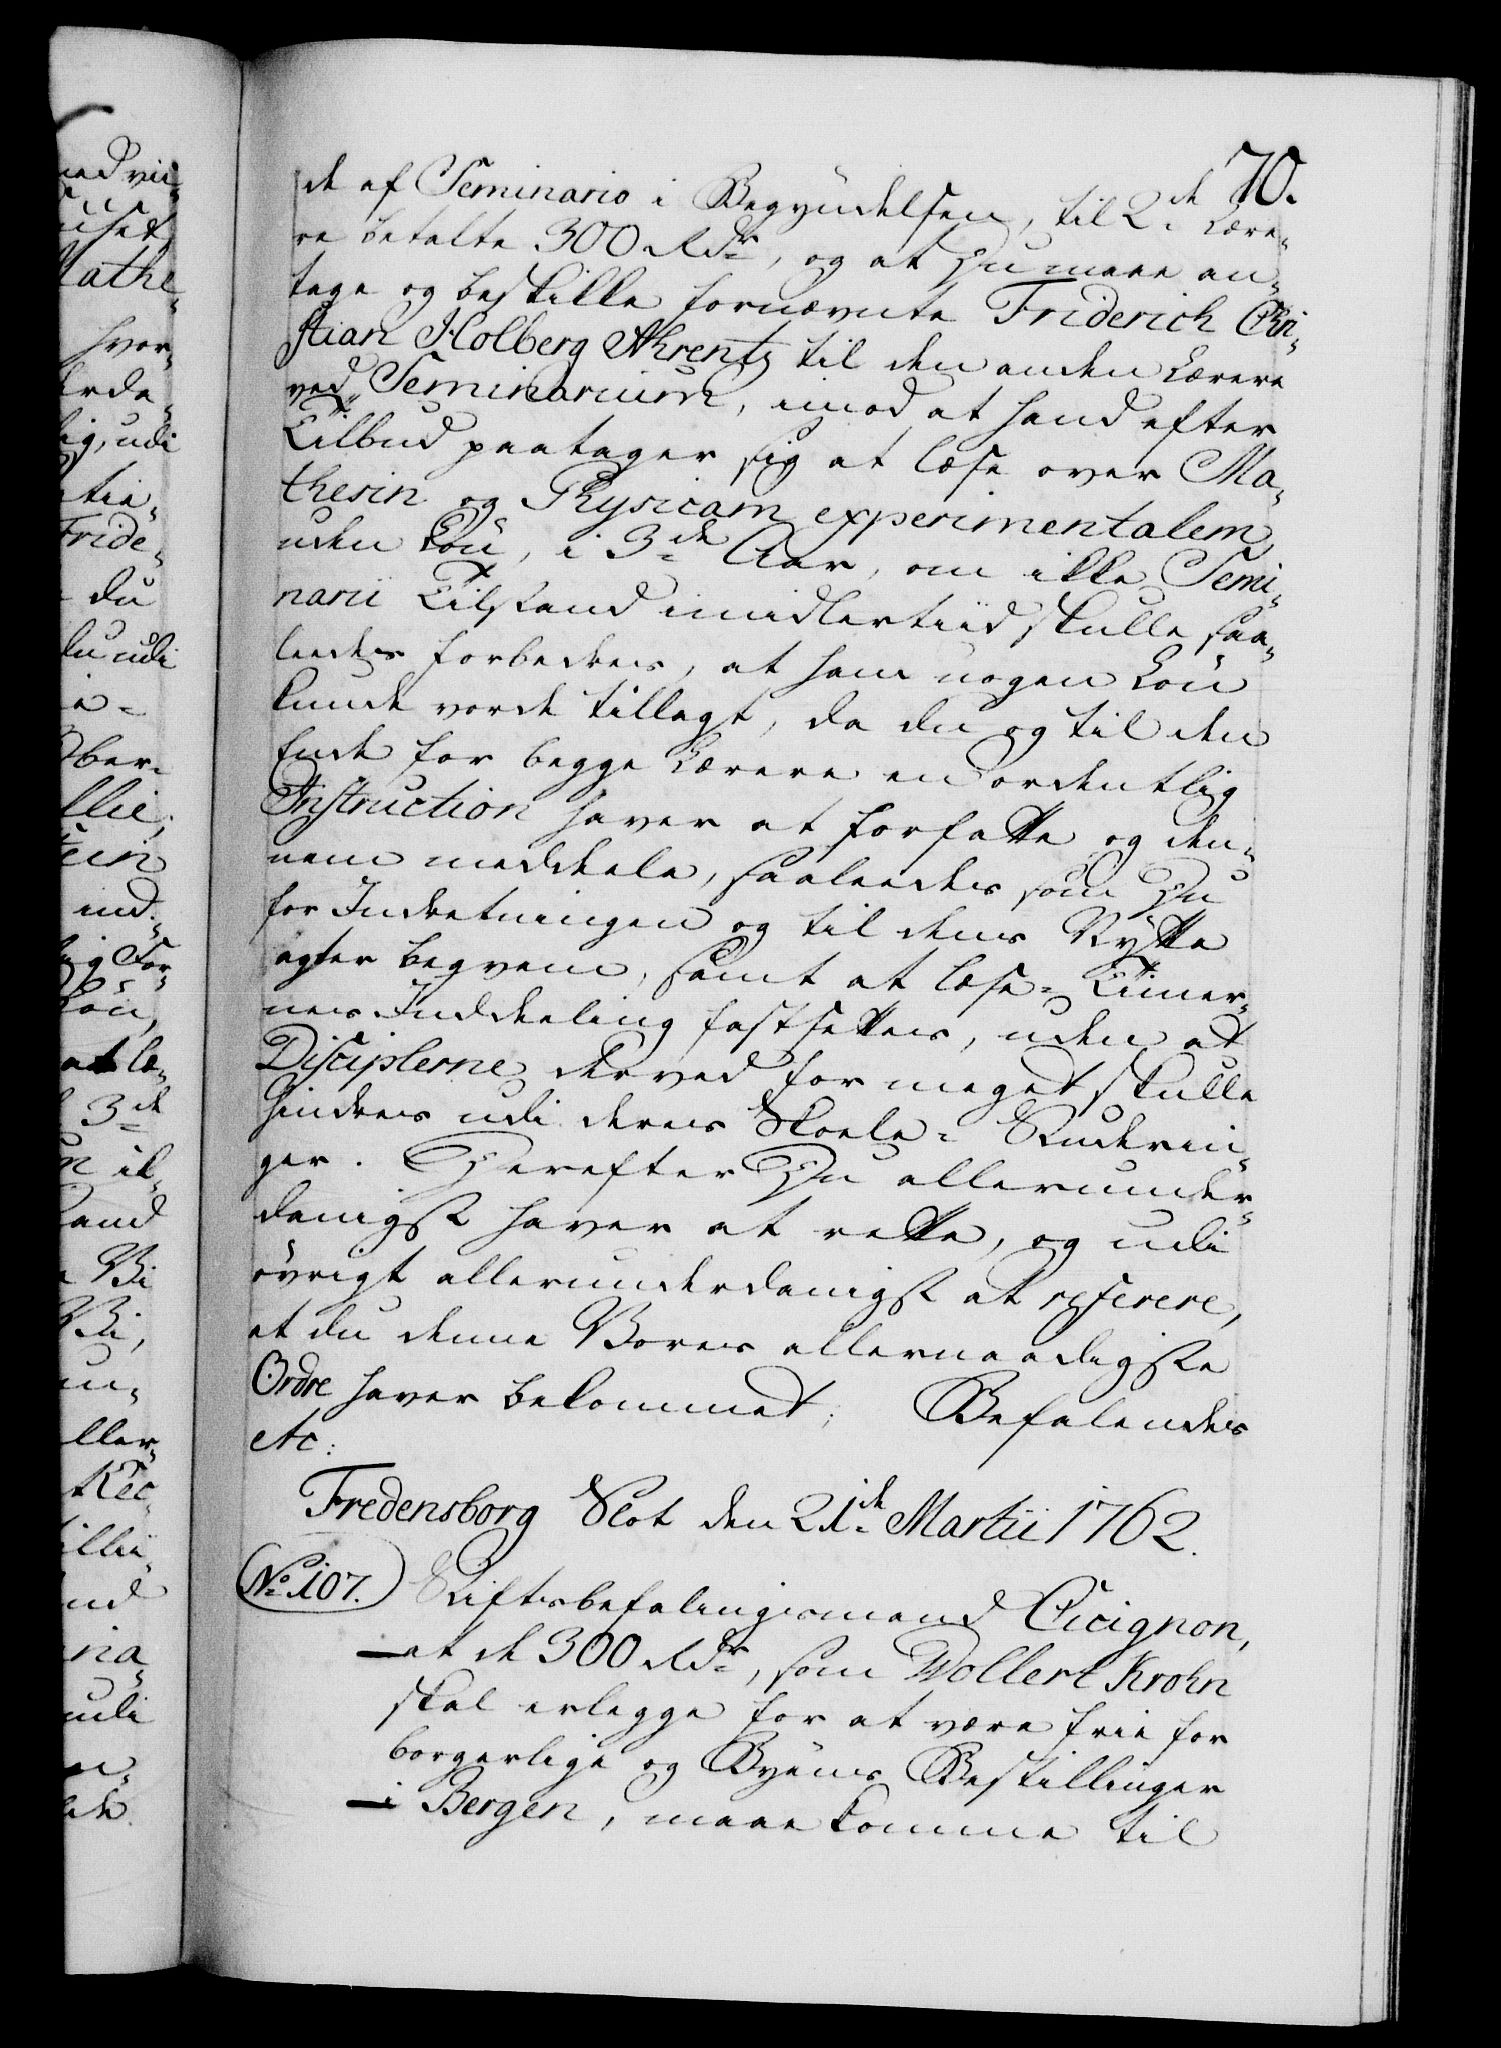 70.
de af Seminario i Begyndelsen, til 2de Lære-
re betalte 300 Rdr, og at Du maae an-
tage og beskikke fornævnte Friderich Chri-
stian Holberg Ahrentz til den anden Lærere
ved Seminarium, imod at hand efter
Tilbud paatager sig at læse over Ma-
thesin og Physicam experimentalem
uden Løn, i 3de Aar, om ikke Semi-
narii Tilstand imidlertiid skulle saa-
leedes forbedres, at ham nogen Løn
kunde vorde tillagt, da du og til den
Ende for begge Lærere en ordentlig
Instruction haver at forfatte og den-
nem meddeele, saaleedes som Du
for Indretningen og til dens Nytte
agter beqvem, samt at læse-Timer-
nes Inddeeling fastsettes, uden at
Disciplerne derved for meget skulle
hindres udi deres Skoele-Studerin-
ger. Herefter Du allerunder-
danigst haver at rette, og udi
øvrigt allerunderdanigst at referere,
at du denne Vores allernaadigste
Ordre haver bekommet. Befalendes
etc:
Fredensborg Slot den 21de Martii 1762.
No. 107. Stiftsbefalingsmand Cicignon,
at de 300 Rdr, som Wollert Krohn
skal erlegge for at være frie for
borgerlige og Byens Bestillinger
i Bergen, maae komme til